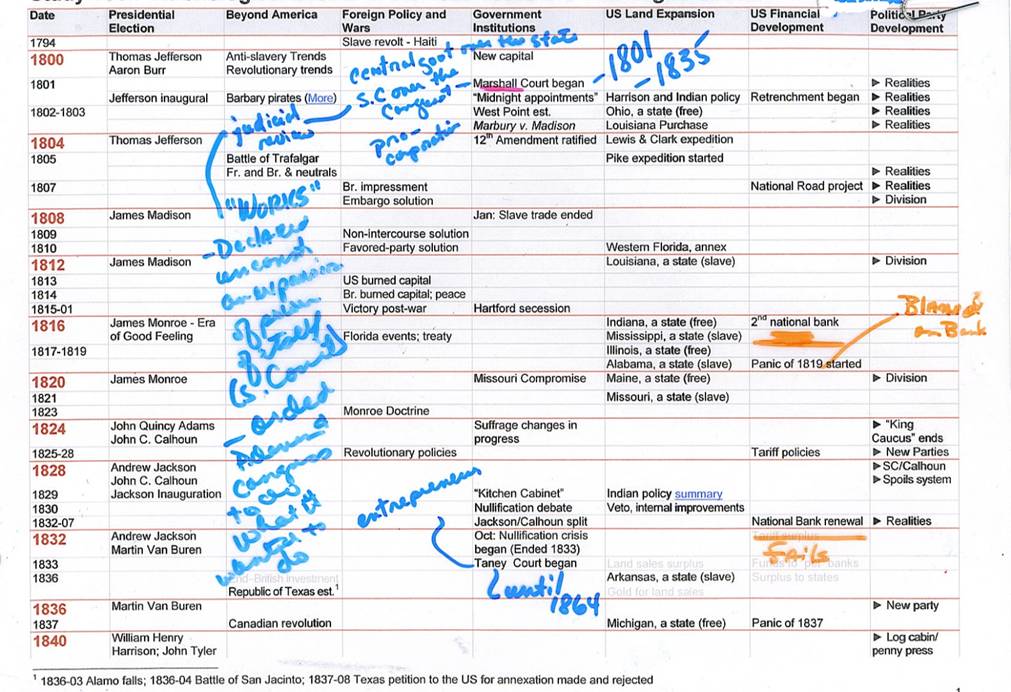 Date Presidential Election Beyond America Foreign Policy and Wars Government Institutions US Land Expansion US Financial Development Political Party Development
1794 Slave revolt - Haiti
1800 Thomas Jefferson Anti-slavery Trends New capital
Aaron Burr Revolutionary trends
central govt over the state
-1801
-1835
1801 Marshall Court began ► Realities
S.C over the
Congress
Jefferson inaugural Barbary pirates (More) "Midnight appointments" Harrison and Indian policy Retrenchment began ► Realities
1802-1803 West Point est. Ohio, a state (free) ► Realities
judicial
review
Marbury v. Madison Louisiana Purchase ► Realities
pro-
corporation
1804 Thomas Jefferson 12th Amendment ratified Lewis & Clark expedition
1805 Battle of Trafalgar Pike expedition started
Fr. and Br. & neutrals ► Realities
1807 Br. impressment National Road project ► Realities
Embargo solution ► Division
"WORKS"
1808 James Madison Jan: Slave trade ended
1809 Non-intercourse solution
1810 Favored-party solution Western Florida, annex
- Declared
unconst
an expansion
of
of
1812 James Madison Louisiana, a state (slave) ► Division
1813 US burned capital
1814 Br. burned capital; peace
1815-01 Victory post-war Hartford secession
1816 James Monroe - Era of Good Feeling Indiana, a state (free) 2nd national bank
Florida events; treaty Mississippi, a state (slave)
1817-1819 Illinois, a state (free)
Alabama, a state (slave) Panic of 1819 started
Blamed
on Bank
(S. Court)
1820 James Monroe Missouri Compromise Maine, a state (free) ► Division
1821 Missouri, a state (slave)
1823 Monroe Doctrine
1824 John Quincy Adams Suffrage changes in progress ► "King Caucus" ends
John C. Calhoun
1825-28 Revolutionary policies Tariff policies ► New Parties
1828 Andrew Jackson ►SC/Calhoun
John C. Calhoun ►Spoils system
1829 Jackson Inauguration "Kitchen Cabinet" Indian policy summary
1830 Nullification debate Veto, internal improvements
1832-07 Jackson/Calhoun split National Bank renewal ► Realities
congress
to do
what it
wanted to
do
entrepreneurs
1832 Andrew Jackson Oct: Nullification crisis began (Ended 1833) Tariff surplus
Martin Van Buren
Fails
1833 Taney Court began Land sales surplus
1836 End-British investment Arkansas, a state (slave) Surplus to states
Republic of Texas est.1 Gold for land sales
(until
1864
1836 Martin Van Buren ► New party
1837 Canadian revolution Michigan, a state (free) Panic of 1837
1840 William Henry Harrison; John Tyler ► Log cabin/ penny press
1 1836-03 Alamo falls; 1836-04 Battle of San Jacinto; 1837-08 Texas petition to the US for annexation made and rejected